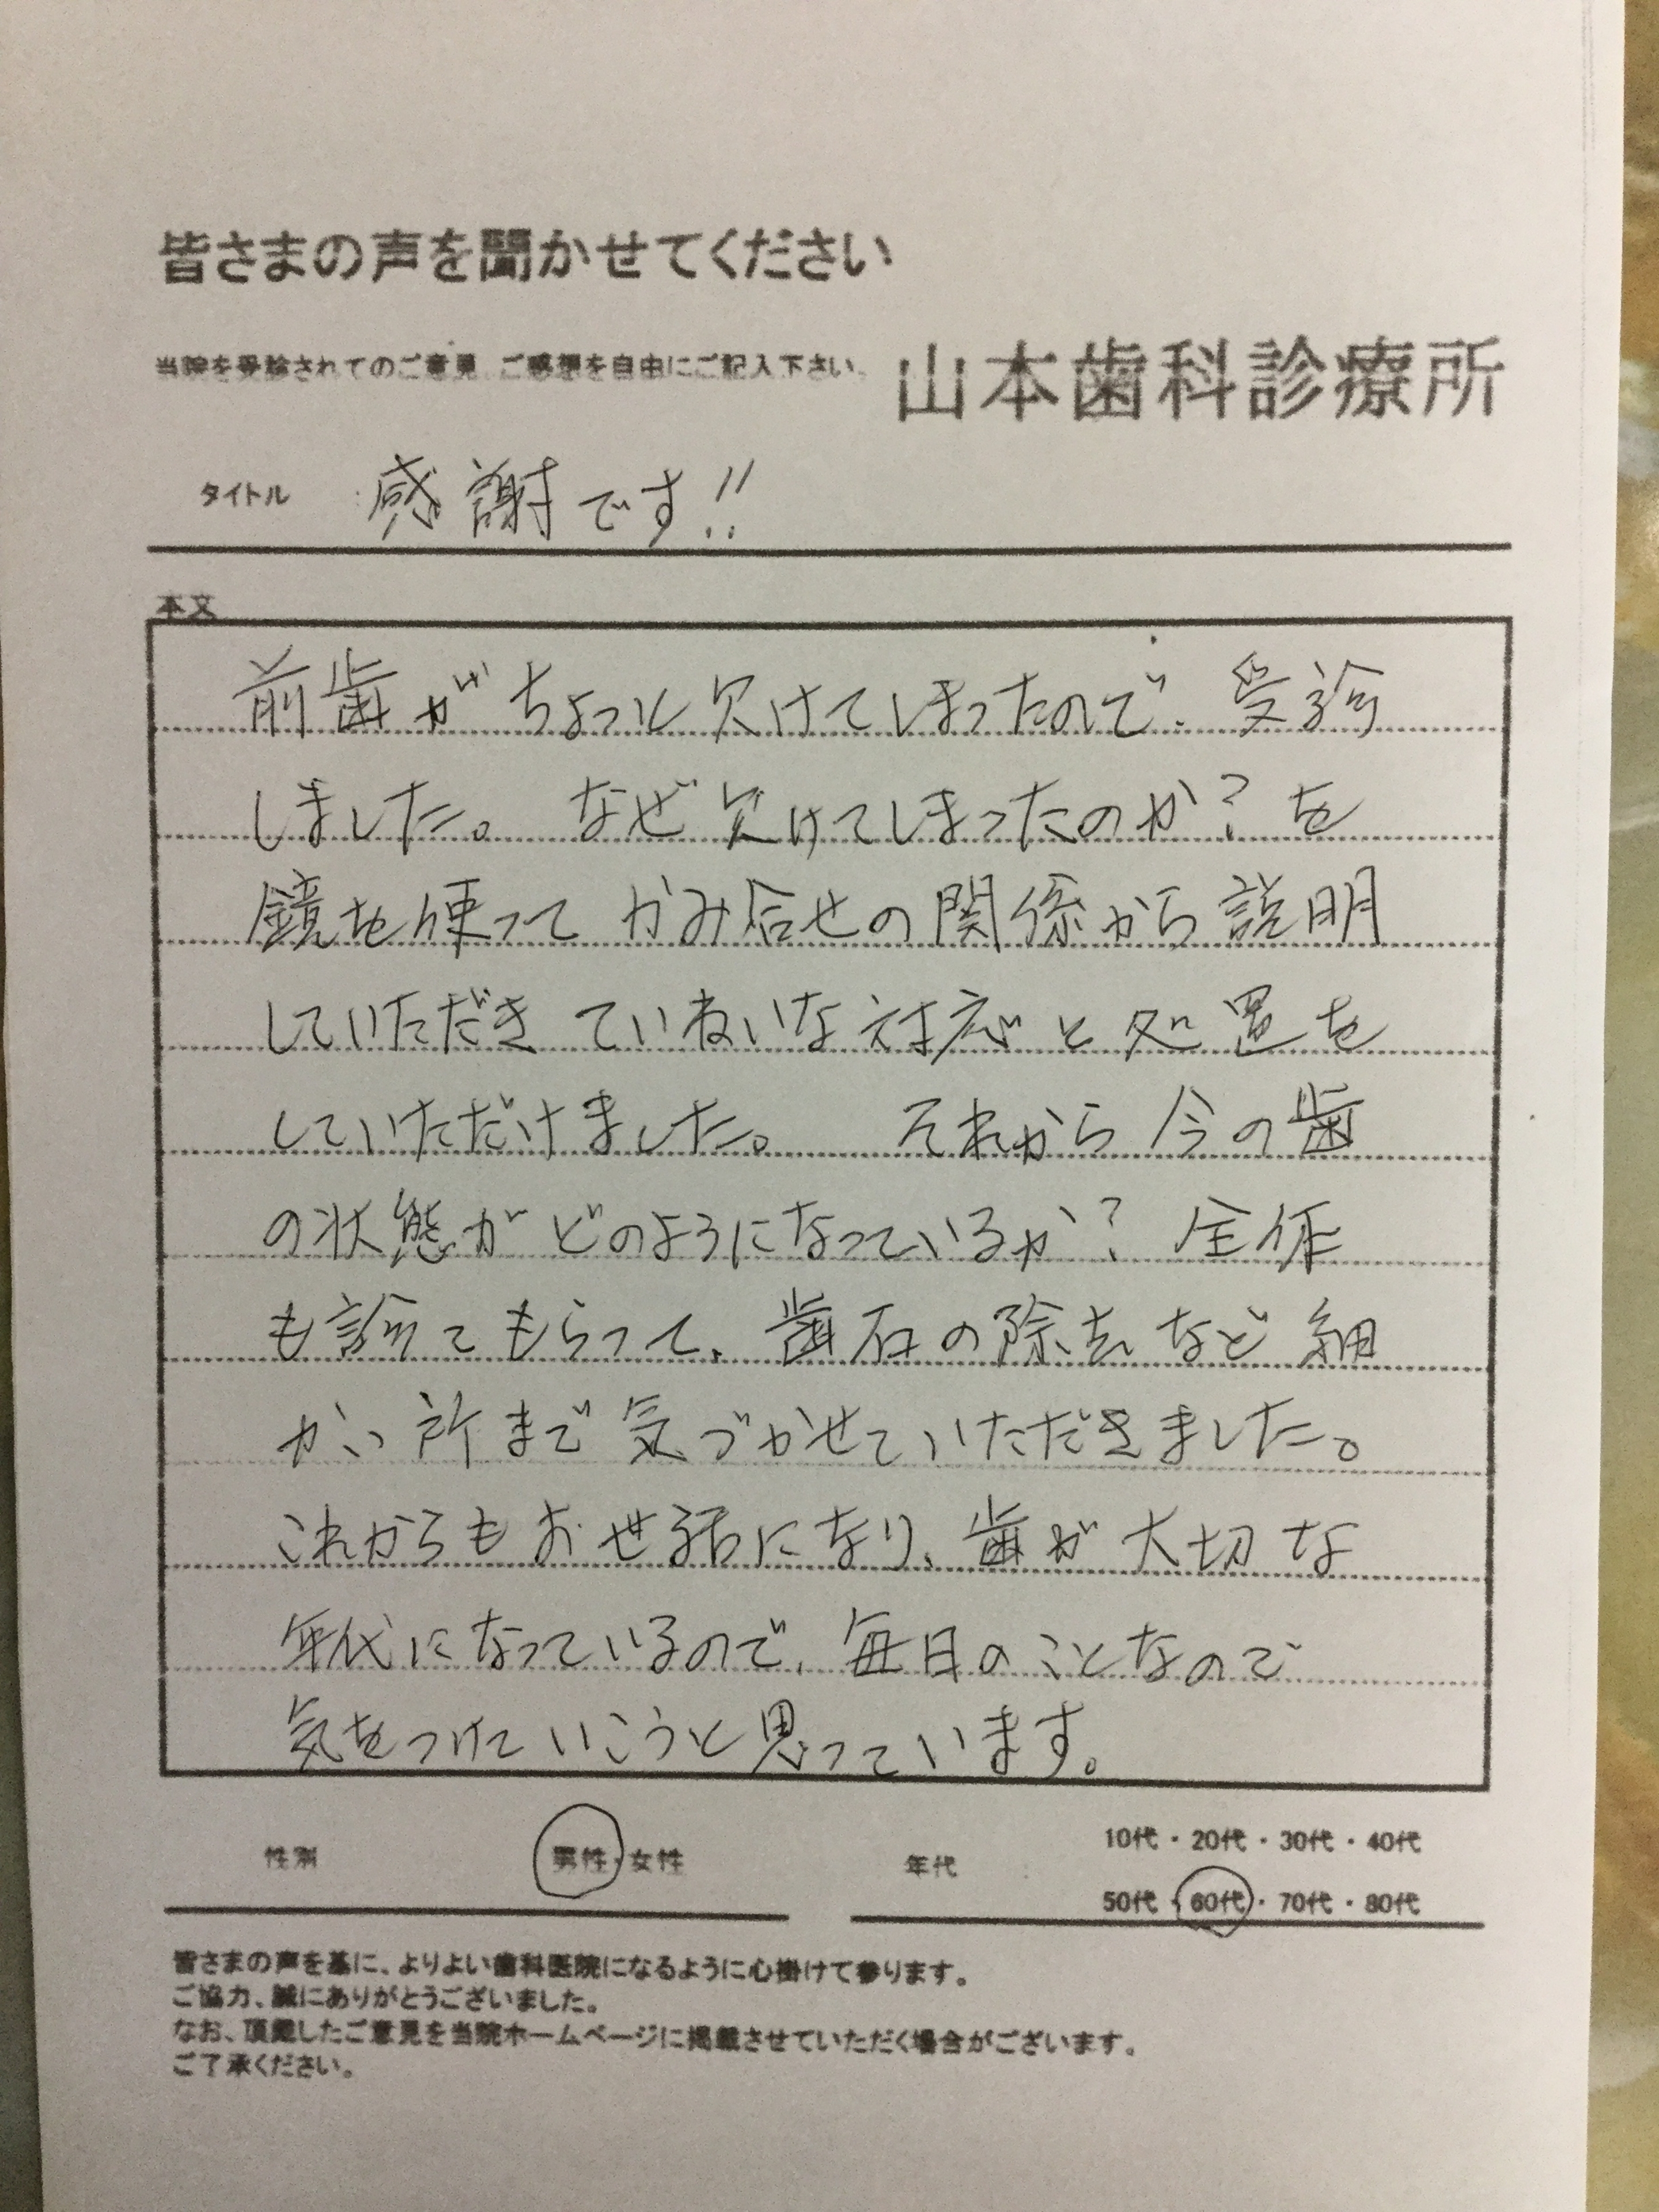 皆さまの声を聞かせてください
当院を受診されてのご意見、ご感想を自由にご記入下さい。
山本歯科診療所
タイトル 感謝です!!
本文
前歯がちょっと欠けてしまったので、受診
しました。なぜ欠けてしまったのか?を
鏡を使って かみ合せの関係から説明
していただき ていねいな対応と処置を
していただけました。 それから今の歯
の状態がどのようになっているか? 全体
も診てもらって、歯石の除去など細
かい所まで気づかせていただきました。
これからもお世話になり、歯が大切な
年代になっているので、毎日のことなので
気をつけていこうと思っています。
性別 男性・女性
年代 10代・20代・30代・40代
50代・60代・70代・80代
皆さまの声を基に、よりよい歯科医院になるように心掛けて参ります。
ご協力、誠にありがとうございました。
なお、頂戴したご意見を当院ホームページに掲載させていただく場合がございます。
ご了承ください。